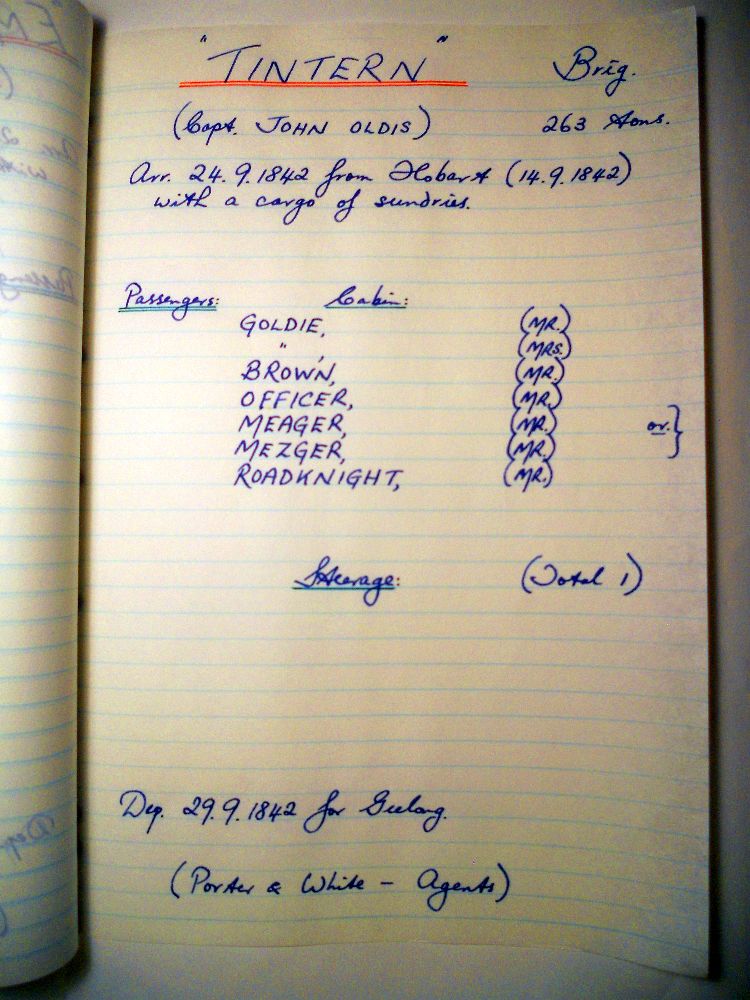 "TINTERN" Brig.
(Capt. JOHN OLDIS) 263 tons.
Arr. 24.9.1842 from Hobart (14.9.1842)
with a cargo of sundries.
Passengers: Cabin:
GOLDIE, (MR.)
" , (MRS.)
BROWN, (MR.)
OFFICER, (MR.)
MEAGER, (MR.) or }
MEZGER, (MR.)
ROADKNIGHT, (MR.)
Steerage: (Total 1)
Dep. 29.9.1842 for Geelong.
(Porter & White - Agents)